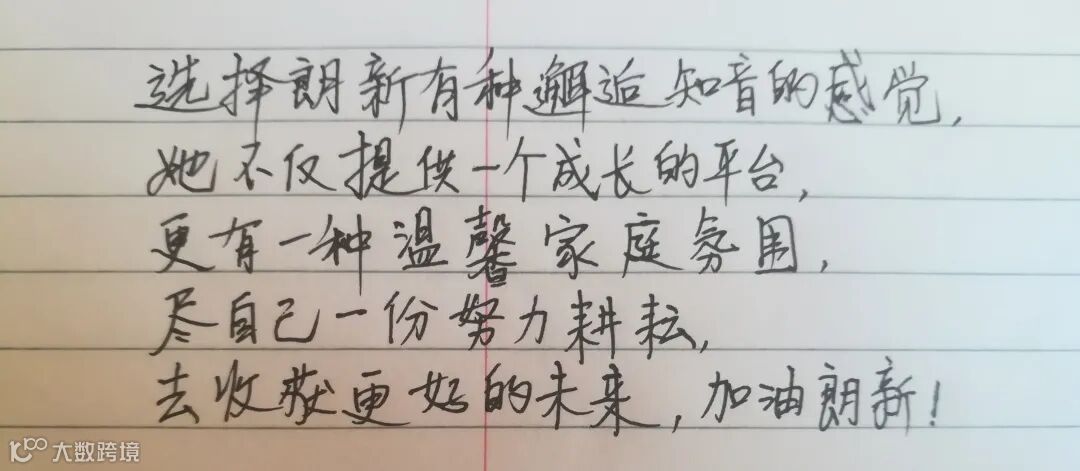 选择朗新有种邂逅知音的感觉,
她不仅提供一个成长的平台,
更有一种温馨家庭氛围,
尽自己一份努力耕耘,
去收获更好的未来,加油朗新!
大数跨境